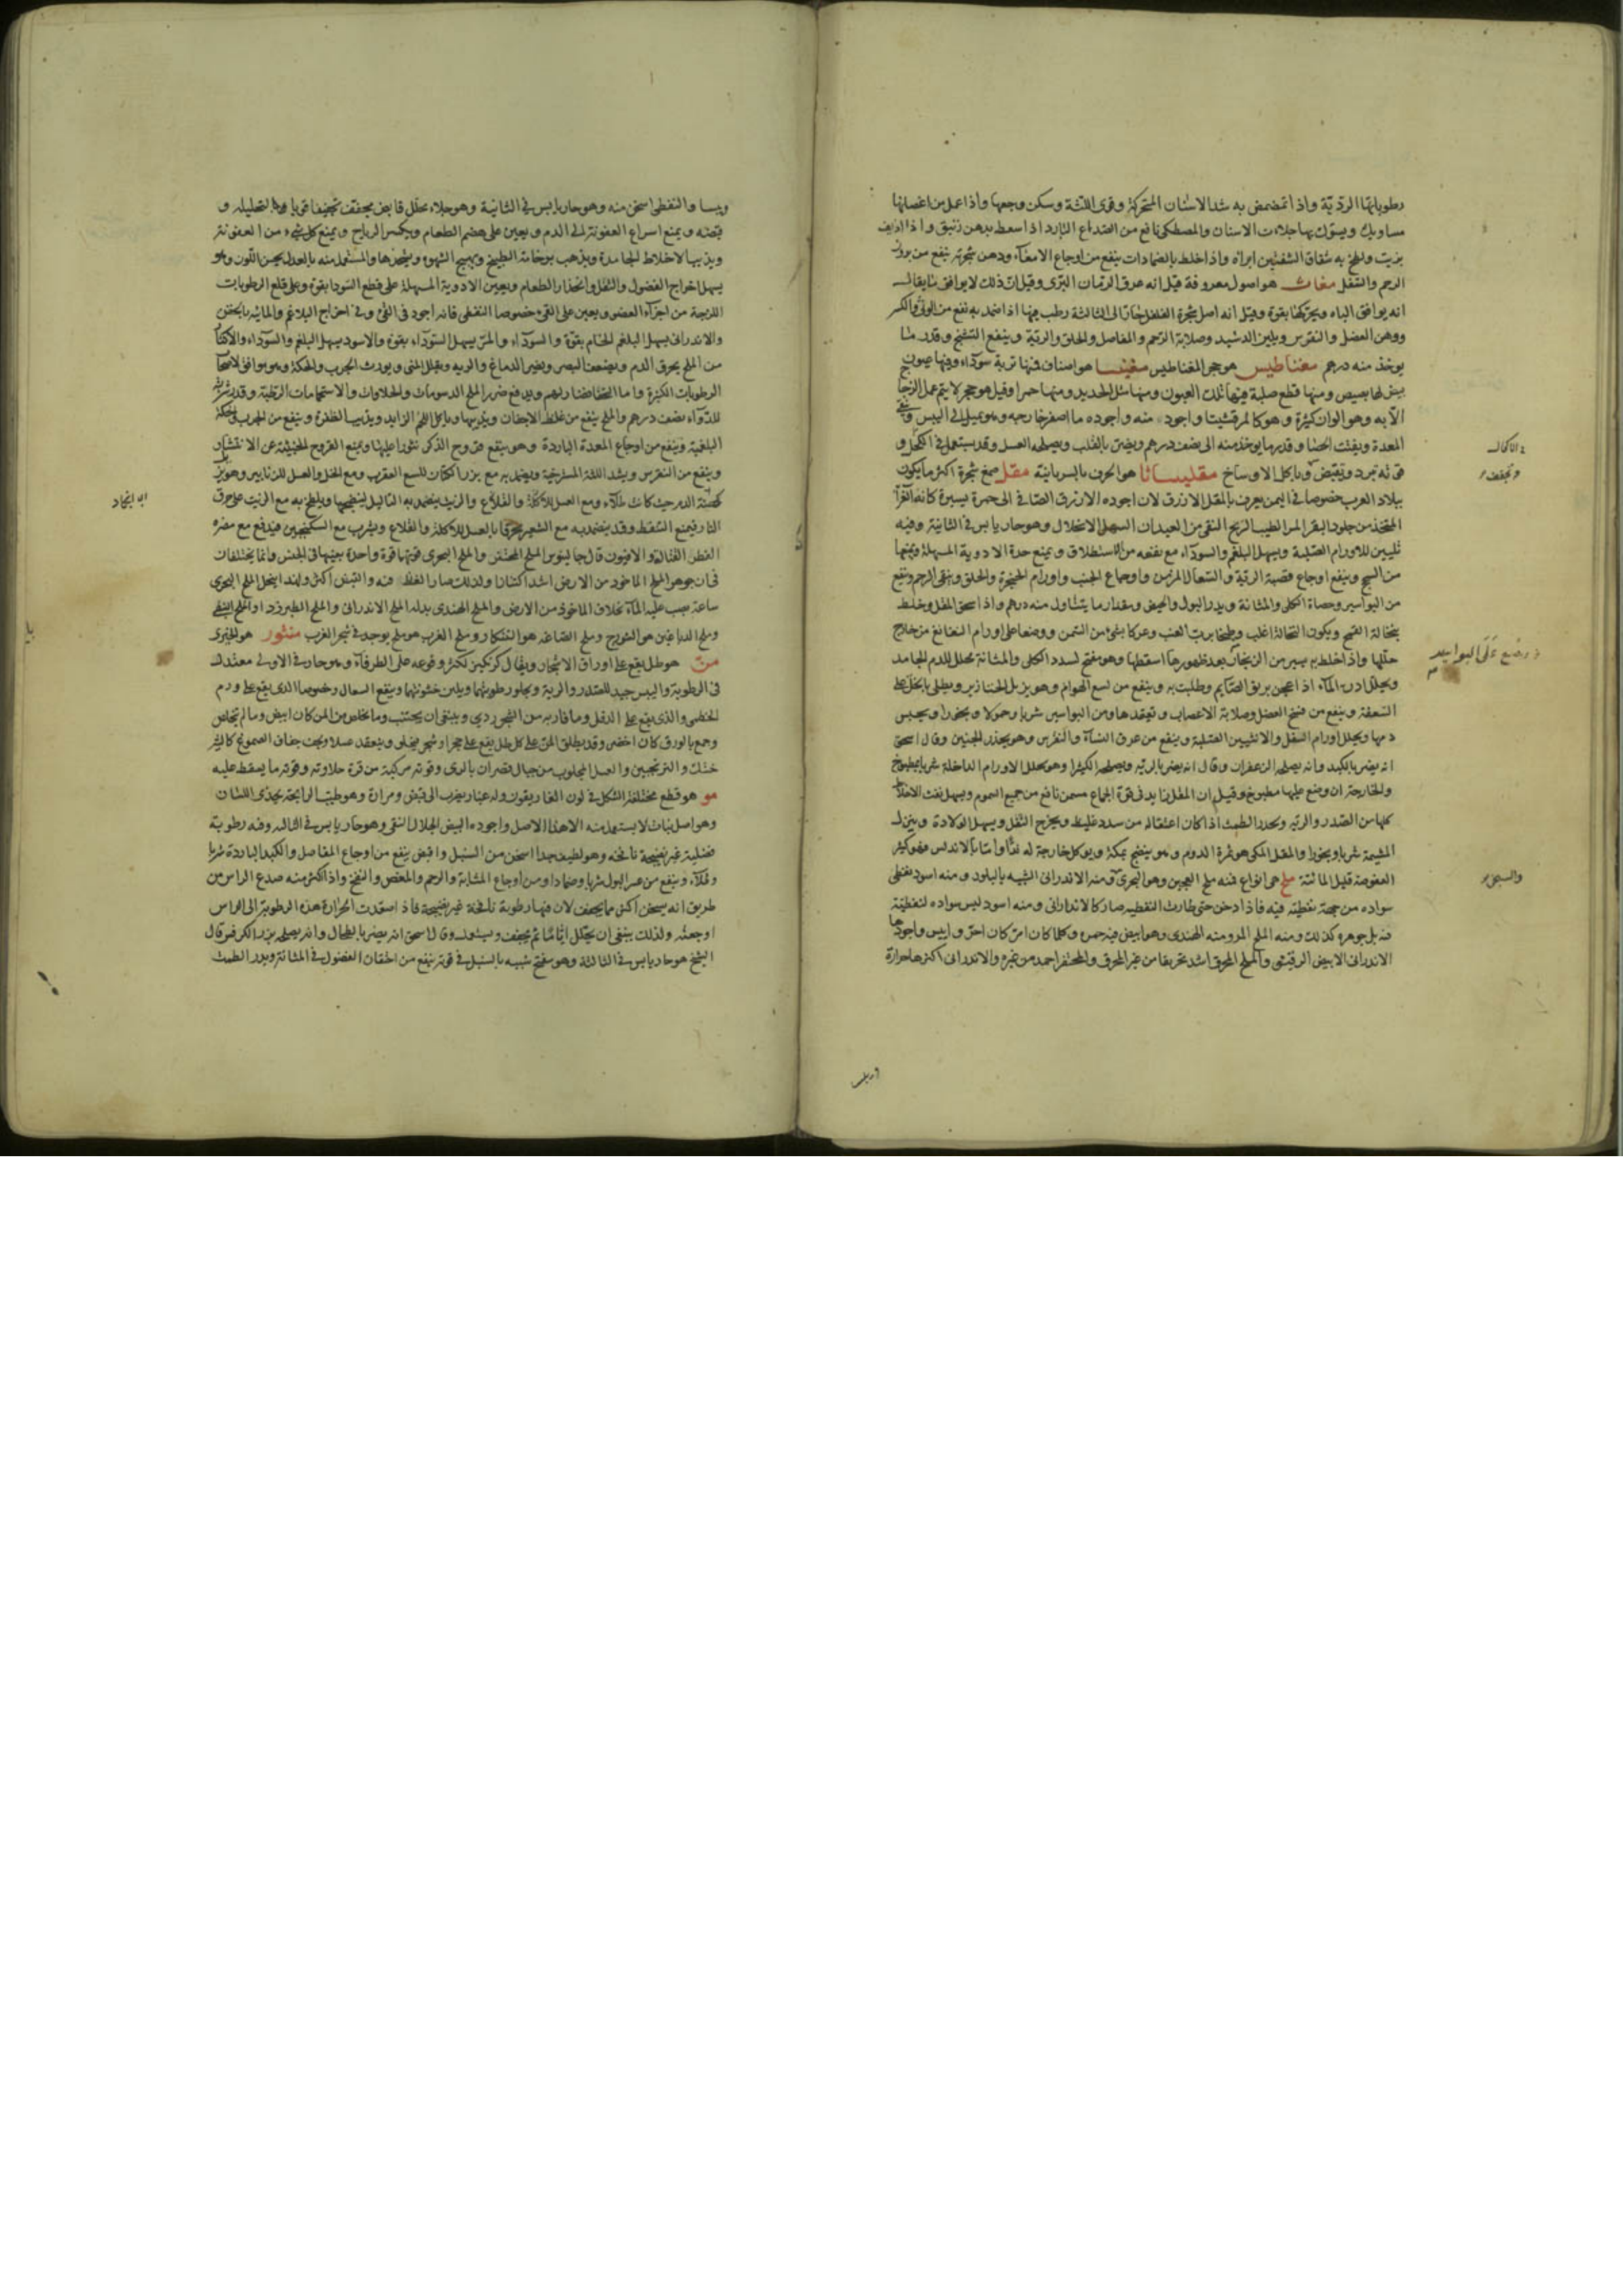 رطوباتها الرديّة واذا تمضمض به شد الاسنان المتحركة وقوى اللثة وسكن وجعها واذا عمل من اغصانها
مساويك ويسوك بها جلات الاسنان والمصطكى نافع من الصداع البارد اذا سعط بدهن زنبق واذا اذيف
بزيت ولطخ به شقاق الشفتين ابراه واذا خلط بالضمادات ينفع من اوجاع الامعاء ودهن شجرته ينفع من بروز
الرحم والثفل مغاث هو اصول معروفة قيل انه عرق الرمان البرى وقيل ان ذلك لا يوافق ما يقال
انه يوافق الباه ويحركها بقوة وقيل انه اصل شجرة الفلفل حار الى الثالثة رطب فيها اذا ضمد به نفع من الوثى والكسر
ووهن العضل والنقرس ويلين الدشيد وصلابة الرحم والمفاصل والحلق والرية وينفع التشنج وقدر ما
يوخذ منه درهم مغناطيس هو حجر المغناطيس مغنيسا هو اصناف فمنها تربة سوداء وفيها عيون
بيض لها بصيص ومنها قطع صلبة فيها تلك العيون ومنها مثل الحديد ومنها حمرا وقيل هو حجر لا يتم عمل الزجاج
الا به وهو الوان كثيرة وهو كالمرقشيتا واجود منه واجوده ما اصفر خارجه وهو يميل الى اليبس
المعدة ويفتت الحصا وقدر ما يوخذ منه الى نصف درهم ويضر بالقلب ويصلحه العسل وقد يستعمل فى الكحل و
قوته تبرد وتقبض وياكل الاوساخ مقلياثا هو الحرف بالسريانية مقل صمغ شجرة اكثر ما يكون
ببلاد العرب خصوصا فى اليمن يعرف بالمقل الازرق لان اجوده الازرق الصافى الى حمرة يسيرة كانه الغرا
المتخذ من جلود البقر المر الطيب الريح النقى من العيدان السهل الانحلال وهو حار يابس فى الثانية وفيه
تليين للاورام الصلبة ويسهل البلغم والسوداء مع نفعه من الاستطلاق ويمنع حدة الادوية المسهلة ويمنعها
من السحج وينفع اوجاع قصبة الرية والسعال المزمن واوجاع الجنب واورام الحنجرة والحلق وينقى الرحم وينفع
من البواسير وحصاة الكلى والمثانة ويدر البول والحيض ومقدار ما يتناول منه درهم واذا سحق المقل وخلط
بنخالة القمح ويكون النخالة اغلب وطبخا برب العنب وعركا بشئ من السمن ووضعا على اورام النغانغ من خارج
حللها واذا خلط به يسير من الزنجار بعد ظهورها اسقطها وهو مفتح لسدد الكلى والمثانة محلل للدم الجامد
ويحلل ادرة الماء اذا عجن بريق الصايم وطليت به وينفع من لسع الهوام وهو يزيل الخنازير ويطلى بالخل على
السعفة وينفع من فسخ العضل وصلابة الاعصاب وتعقدها ومن البواسير شربا وحمولا وبخورا ويحبس
دمها ويحلل اورام السفل والانثيين الصلبة وينفع من عرق النساء والنقرس وهو يحدر الجنين وقال اسحق
انه يضر بالكبد وانه يصلحه الزعفران وقال انه يضر بالرية ويصلحه الكثيرا وهو محلل الاورام الداخلة شربا بمطبوخ
والخارجة ان وضع عليها مطبوخ وقيل ان المقل يزيد فى قوة الجماع مسمن نافع من جميع السموم ويسهل نفث الاخلاط
كلها من الصدر والرية ويحدر الطمث اذا كان اعتقاله من سدد غليظ ويخرج الثفل ويسهل الولادة وينزل
المشيمة شربا وبخورا والمقل المكى هو ثمرة الدوم وهو ينضج بمكة ويوكل خارجة له لذا واما بالاندلس فهو كثير
العفوصة قليل المائية ملح هى انواع فمنه ملح العجين وهو البحرى ومنه الاندرانى الشبيه بالبلور ومنه اسود نفطى
سواده من جهة نفطية فيه فاذا دخن حتى طارت النفطية صار كالاندرانى ومنه اسود ليس سواده لنفطية
فيه بل جوهره كذلك ومنه الملح المر ومنه الهندى وهو ابيض فيه حمره وكلما كان امر كان احر وايبس واجودها
الاندرانى الابيض الرقيق والملح المحرق اشد تحريقا من غير المحرق والمحتفر احمد من غيره والاندرانى اكثرها حرارة
الاكال
وتجفف
وضع على البواسير
والسحق
ويبسا والنفطى اسخن منه وهو حار يابس فى الثانية وهو جلاء محلل قابض مجفف تجفيفا قويا لتحليله و
قبضه ويمنع اسراع العفونة الى الدم ويعين على هضم الطعام ويكسر الرياح ويمنع كل شىء من العفونة
ويذيب الاخلاط الجامدة ويذهب بوخامة الطبيخ ويهيج الشهوة ويشحذها والمستعمل منه بالعدل يحسن اللون وهو
يسهل اخراج الفضول والثفل وانحدار الطعام ويعين الادوية المسهلة على قطع السودا بقوة وعلى قلع الرطوبات
اللزجة من اجزاء العضو ويعين على القى خصوصا النفطى فانه اجود فى القى وفى اخراج البلاغم والمائية بالحقن
والاندرانى يسهل البلغم الخام بقوة والسوداء والمر يسهل السوداء بقوة والاسود يسهل البلغم والسوداء والاكثار
من الملح يحرق الدم ويضعف البصر ويضر الدماغ والرية ويقلل المنى ويورث الجرب والحكة وهو يوافق لاصحاب
الرطوبات الكثيرة واما النحفا فضار لهم ويدفع ضرر الملح الدسومات والحلاوات والاستحمامات الرطبة وقدر شربته
للدواء نصف درهم والملح ينفع من غلظ الاجفان ويذيبها وياكل اللحم الزايد ويذيب الظفرة وينفع من الجرب والحكة
البلغمية وينفع من اوجاع المعدة الباردة وهو ينفع قروح الذكر نثورا عليها ويمنع القروح الخبيثة عن الانتشار
وينفع من النقرس ويشد اللثة المسترخية ويضمد به مع بزر الكتان للسع العقرب ومع الخل والعسل للزنابير وهو يزيل
كهبة الدم حيث كانت طلاء ومع العسل للاكلة والقلاع والزيت يضمد به الثاليل ينضجها ويلطخ به مع الزيت على حرق
النار فيمنع التنفط وقد يضمد به مع الشعير محرقا بالعسل للاكلة والقلاع ويشرب مع السكنجبين فيدفع مع مضرة
الفطر القتالة والافيون قال جالينوس الملح المحتفر والملح البحرى قوتهما قوة واحدة بعينها فى الجنس وانما يختلفان
فى ان جوهر الملح الماخوذ من الارض اشد اكتنازا ولذلك صار الغلظ فيه والقبض اكثر ولهذا ينحل الملح البحرى
ساعة يصب عليه الماء بخلاف الماخوذ من الارض والملح الهندى بدله الملح الاندرانى والملح الطبرزد او الملح النبطى
وملح الدباغين هو الشورج وملح الصاغة هو التنكار وملح الغرب هو ملح يوجد فى شجر الغرب منثور هو الخيرى
منّ هو طل يقع على اوراق الاشجار ويقال كزنكبين لكثرة وقوعه على الطرفاء وهو حار فى الاولى معتدل
فى الرطوبة واليبس جيد للصدر والرية ويجلو رطوبتها ويلين خشونتها وينفع السعال وخصوصا الذى يقع على ورم
الخطمى والذى يقع على الدفل وما قاربه من الشجر ردى وينبغى ان يجتنب وما يخلص من المن كان ابيض وما لم يخلص
وجمع بالورق كان اخضر وقد يطلق المن على كل طل يقع على حجر او شجر فيحلو وينعقد عسلا ويجف جفاف الصموغ كالشير
خشك والترنجبين والعسل المجلوب من جبال قصران بالرى وقوته مركبة من قوة حلاوته وقوة ما يسقط عليه
مو هو قطع مختلفة الشكل فى لون الغاريقون وله غبار يضرب الى قبض ومرارة وهو طيب الرايحة يحذى اللسان
وهو اصل نبات لا يستعمل منه الا هذا الاصل واجوده البيض الجلال النقى وهو حار يابس فى الثالثه وفيه رطوبة
فضلية غير نضيجة نافخة وهو لطيف جدا اسخن من السنبل واقبض ينفع من اوجاع المفاصل والكبد الباردة شربا
وطلاء وينفع من عسر البول شربا وضمادا ومن اوجاع المثانة والرحم والمغص والنفخ واذا اكثر منه صدع الراس من
طريق انه يسخن اكثر مما يجفف لان فيها رطوبة نافخة غير نضيجة فاذا اصعدت الحرارة هذه الرطوبة الى الراس
اوجعته ولذلك ينبغى ان يحلل ايّامًا ثم يجفف ويتناول وقال اسحق انه يضر بالطحال وانه يصلحه بزر الكرفس قال
الشيخ هو حار يابس فى الثالثة وهو مفتح شبيه بالسنبل فى قوته ينفع من احتقان الفضول فى المثانة ويدر الطمث